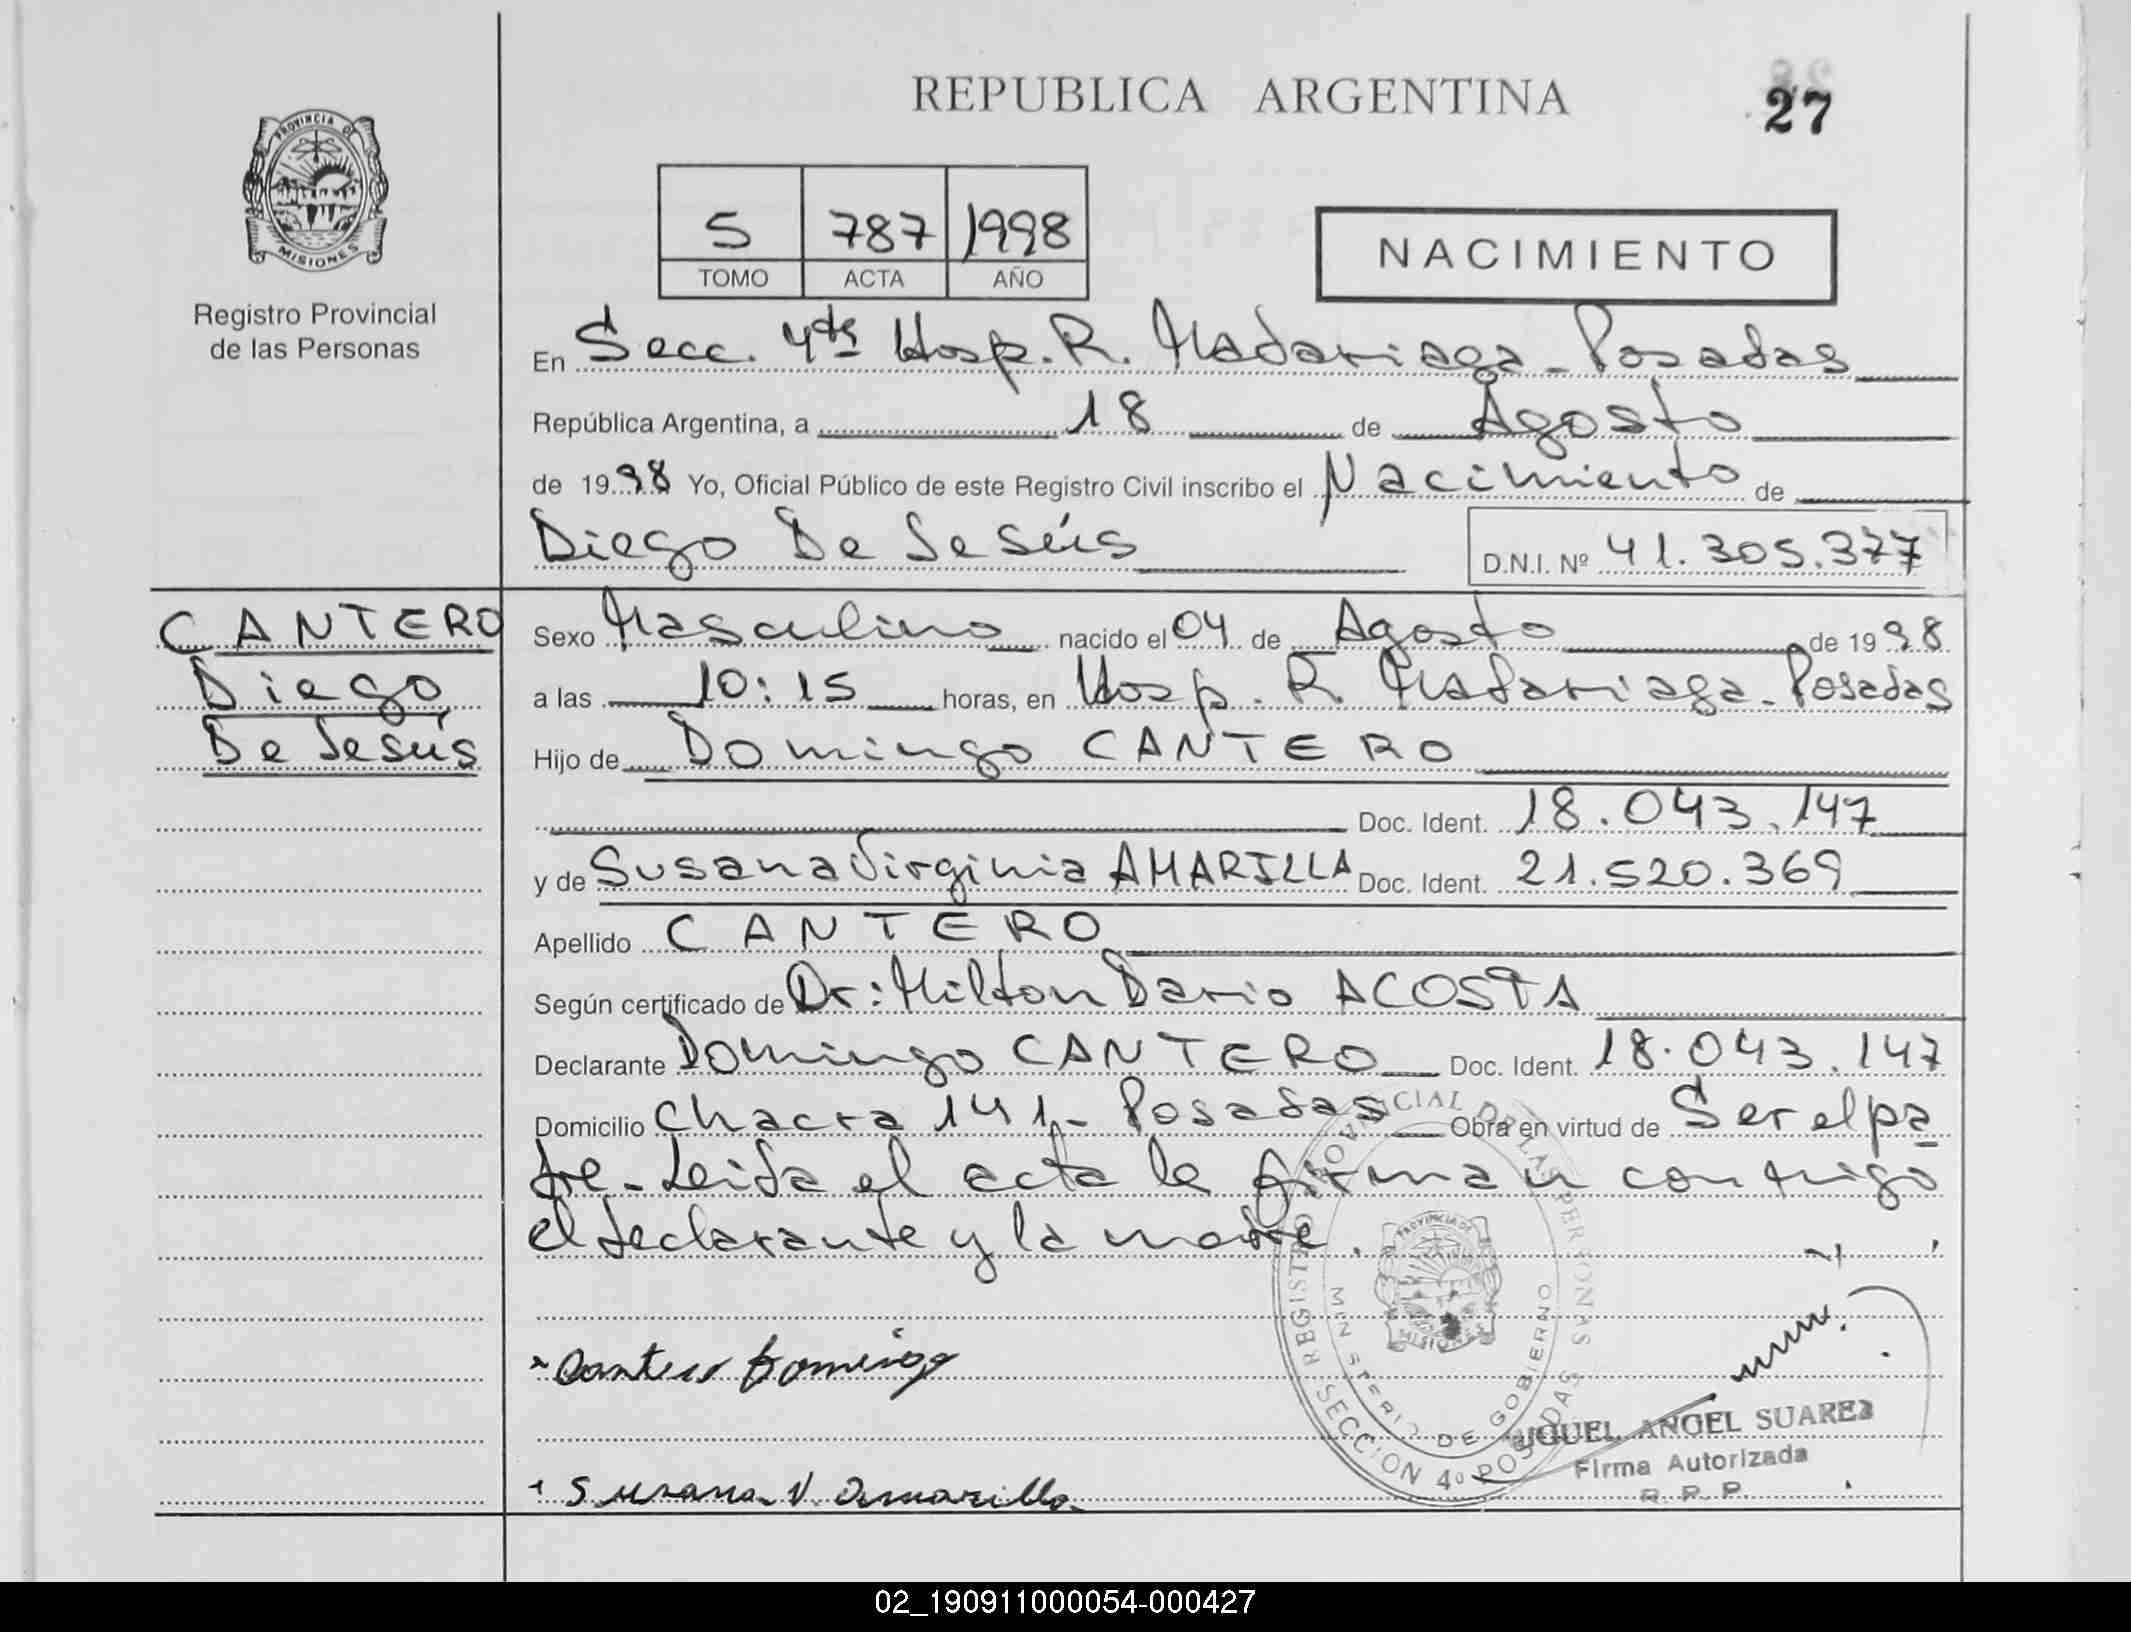 REPUBLICA ARGENTINA
27
PROVINCIA DE
MISIONES
Registro Provincial
de las Personas
5 787 1998
TOMO ACTA AÑO
NACIMIENTO
En Secc. 4ta Hosp. R. Madariaga - Posadas
República Argentina, a 18 de Agosto
de 1998 Yo, Oficial Público de este Registro Civil inscribo el Nacimiento de
Diego De Jesús
D.N.I. Nº 41.305.377
CANTERO
Diego
De Jesús
Sexo Masculino nacido el 04 de Agosto de 1998
a las 10:15 horas, en Hosp. R. Madariaga - Posadas
Hijo de Domingo CANTERO
Doc. Ident. 18.043.147
y de Susana Virginia AMARILLA Doc. Ident. 21.520.369
Apellido CANTERO
Según certificado de Dr: Milton Dario ACOSTA
Declarante Domingo CANTERO Doc. Ident. 18.043.147
Domicilio Chacra 141 - Posadas Obra en virtud de Ser el pa
dre - Leida el acta la firman conmigo
el declarante y la madre.
REGISTRO PROVINCIAL DE LAS PERSONAS
SECCION 4º POSADAS
MINISTERIO DE GOBIERNO
PROVINCIA DE
MISIONES
Cantero Domingo
MIGUEL ANGEL SUAREZ
Firma Autorizada
R. P. P.
Susana V. Amarilla
02_190911000054-000427